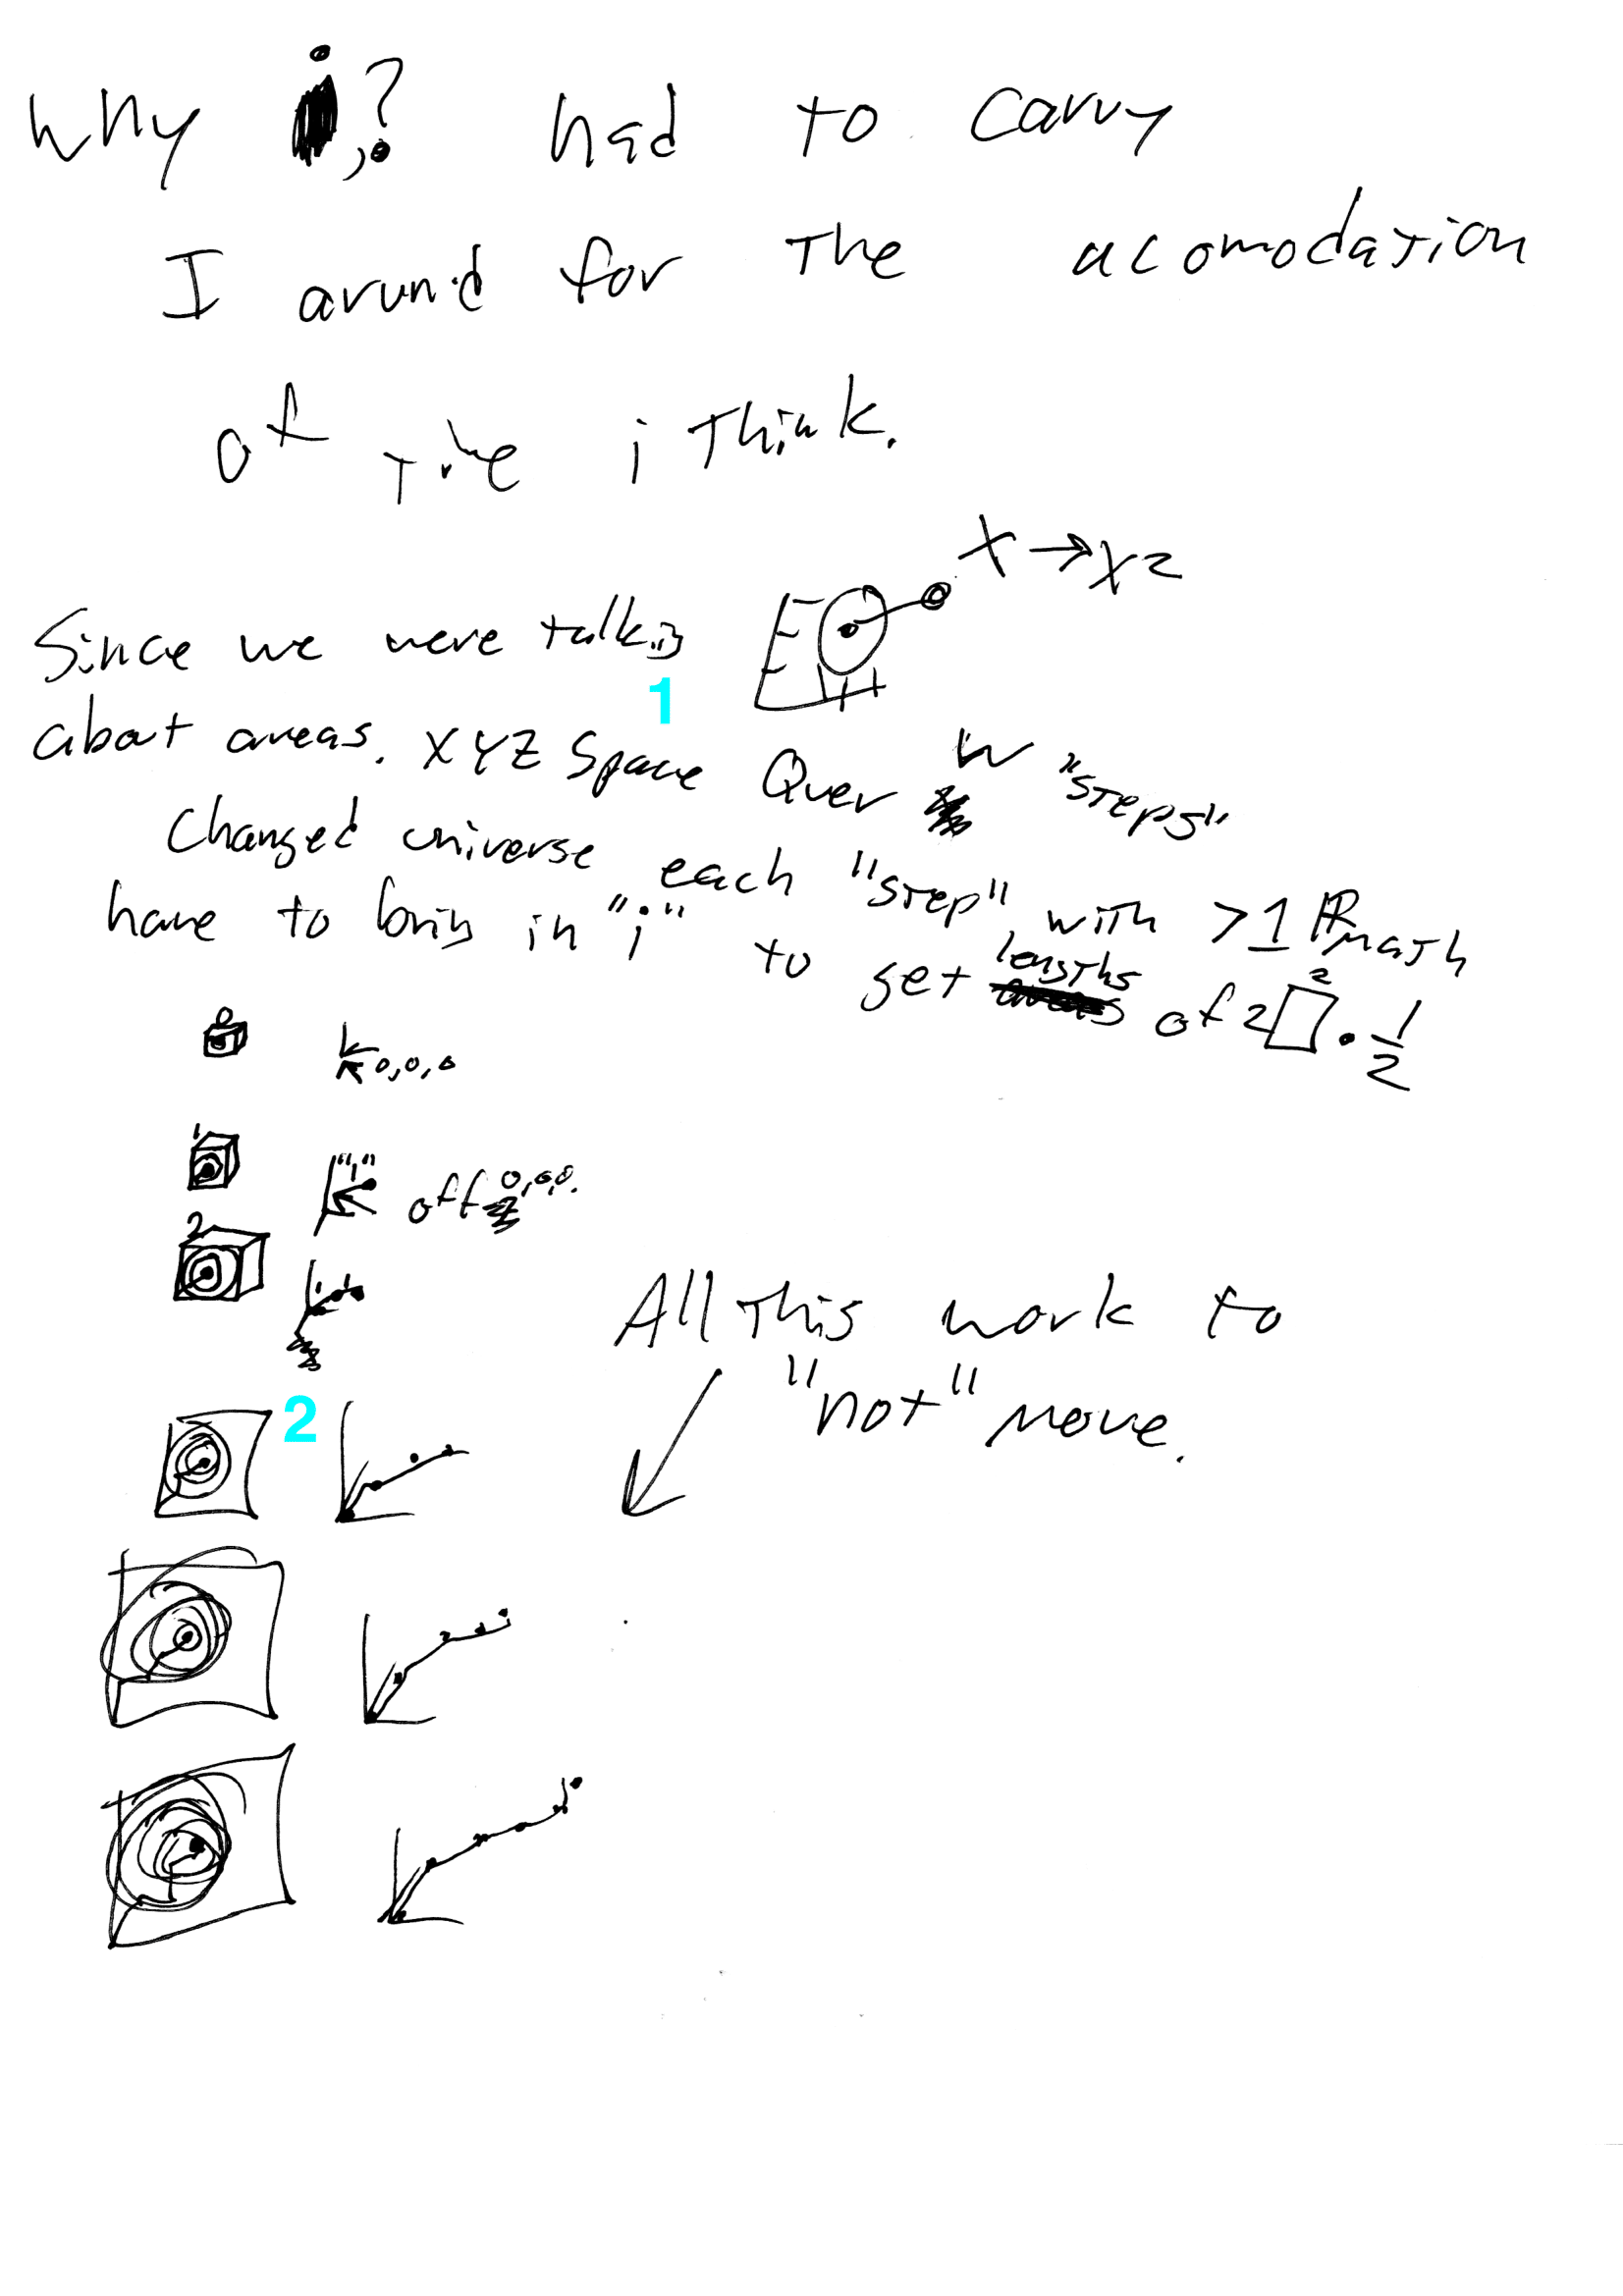 Why i,? had to carry
I around for the acomodation
of the i Think.
X → X2
Since we were talking
1
about areas. XYZ Space Over W "steps"
Changed universe each "step" with >1 ℝ math
have to bring in "i" to get lengths of 2□² • 1/2
0
0,0,0
1
"1" off 0,0,0.
2
All This work to
"not" move.
2